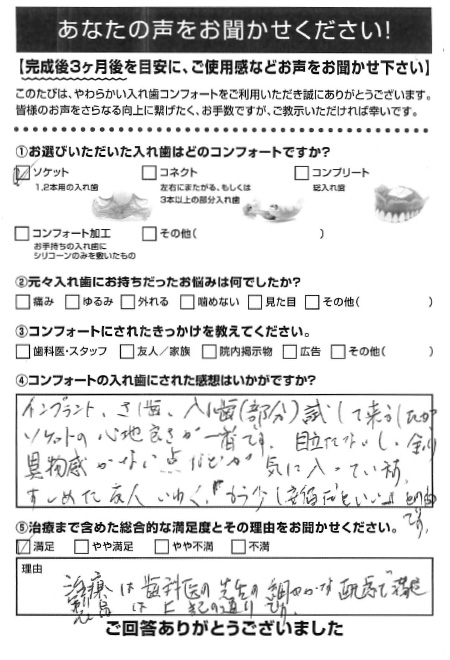 あなたの声をお聞かせください!
【完成後3ヶ月後を目安に、ご使用感などお声をお聞かせ下さい】
このたびは、やわらかい入れ歯コンフォートをご利用いただき誠にありがとうございます。
皆様のお声をさらなる向上に繋げたく、お手数ですが、ご教示いただければ幸いです。
①お選びいただいた入れ歯はどのコンフォートですか?
ソケット コネクト コンプリート
1,2本用の入れ歯 左右にまたがる、もしくは 総入れ歯
3本以上の部分入れ歯
コンフォート加工 その他( )
お手持ちの入れ歯に
シリコーンのみを敷いたもの
②元々入れ歯にお持ちだったお悩みは何でしたか?
痛み ゆるみ 外れる 噛めない 見た目 その他( )
③コンフォートにされたきっかけを教えてください。
歯科医・スタッフ 友人/家族 院内掲示物 広告 その他( )
④コンフォートの入れ歯にされた感想はいかがですか?
インプラント、さし歯、入れ歯(部分)試して来ましたが
ソケットの心地良さが一番です。目立たないし、余り
異物感がない点などが気に入ってい
すすめた友人いわく、「もう少し安価だといい」との
です。
⑤治療まで含めた総合的な満足度とその理由をお聞かせください。
満足 やや満足 やや不満 不満
理由
治療は歯科医の先生の細やかな配慮で満足
は上記の通りです。
ご回答ありがとうございました